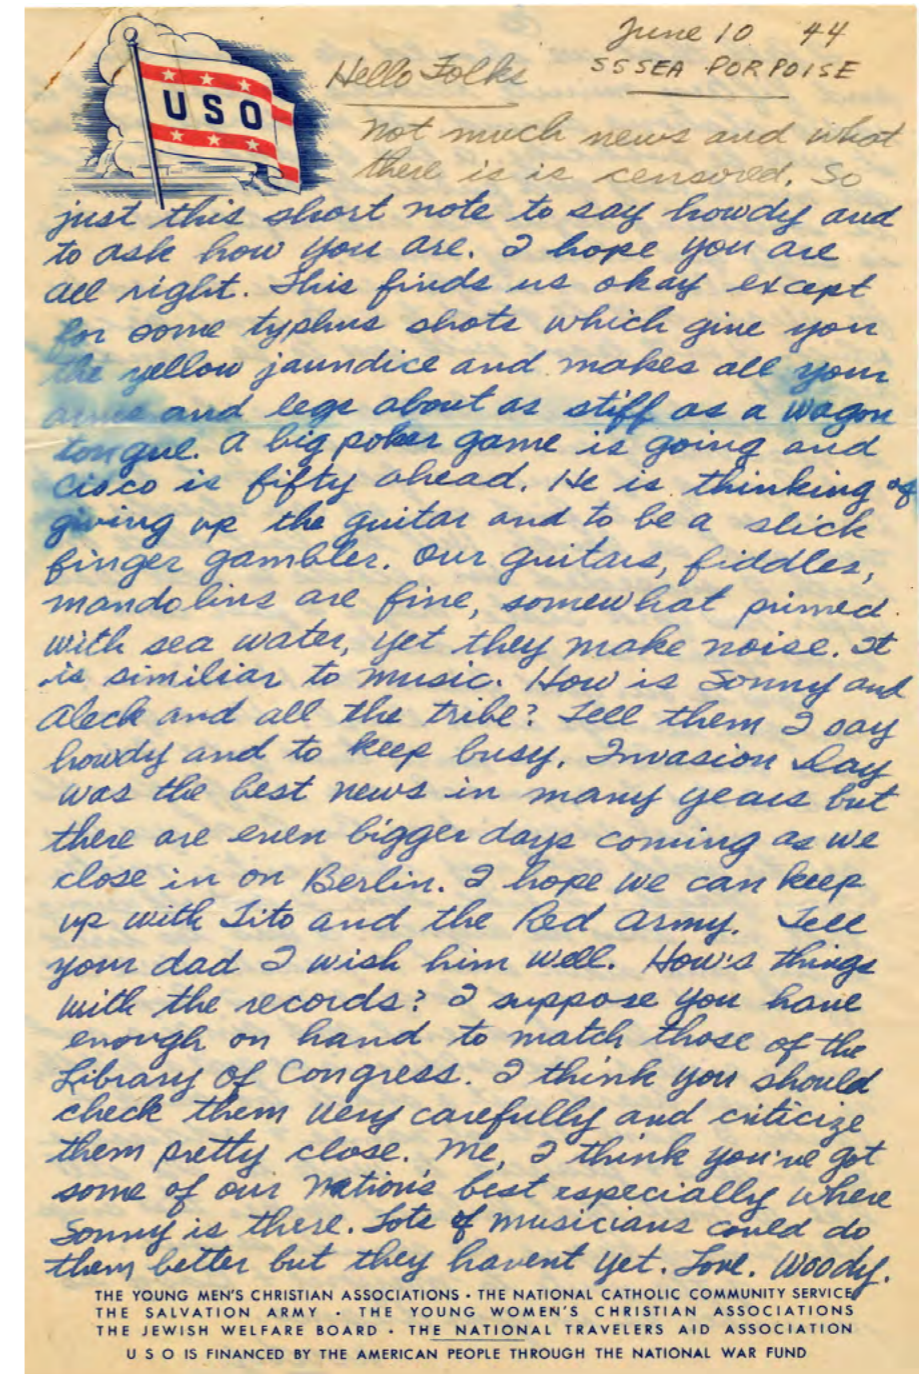 June 10 44
SS SEA PORPOISE
USO
Hello Folks
Not much news and what
there is is censored. So
just this short note to say howdy and
to ask how you are. I hope you are
all right. This finds us okay except
for some typhus shots which give you
the yellow jaundice and makes all your
arms and legs about as stiff as a wagon
tongue. A big poker game is going and
Cisco is fifty ahead. He is thinking of
giving up the guitar and to be a slick
finger gambler. Our guitars, fiddles,
mandolins are fine, somewhat primed
with sea water, yet they make noise. It
is similiar to music. How is Sonny and
Aleck and all the tribe? Tell them I say
howdy and to keep busy. Invasion Day
was the best news in many years but
there are even bigger days coming as we
close in on Berlin. I hope we can keep
up with Tito and the Red Army. Tell
your dad I wish him well. How's things
with the records? I suppose you have
enough on hand to match those of the
Library of Congress. I think you should
check them very carefully and criticize
them pretty close. Me, I think you've got
some of our Nation's best especially where
Sonny is there. Lots of musicians could do
them better but they havent yet. Love. Woody.
THE YOUNG MEN'S CHRISTIAN ASSOCIATIONS · THE NATIONAL CATHOLIC COMMUNITY SERVICE
THE SALVATION ARMY · THE YOUNG WOMEN'S CHRISTIAN ASSOCIATIONS
THE JEWISH WELFARE BOARD · THE NATIONAL TRAVELERS AID ASSOCIATION
USO IS FINANCED BY THE AMERICAN PEOPLE THROUGH THE NATIONAL WAR FUND